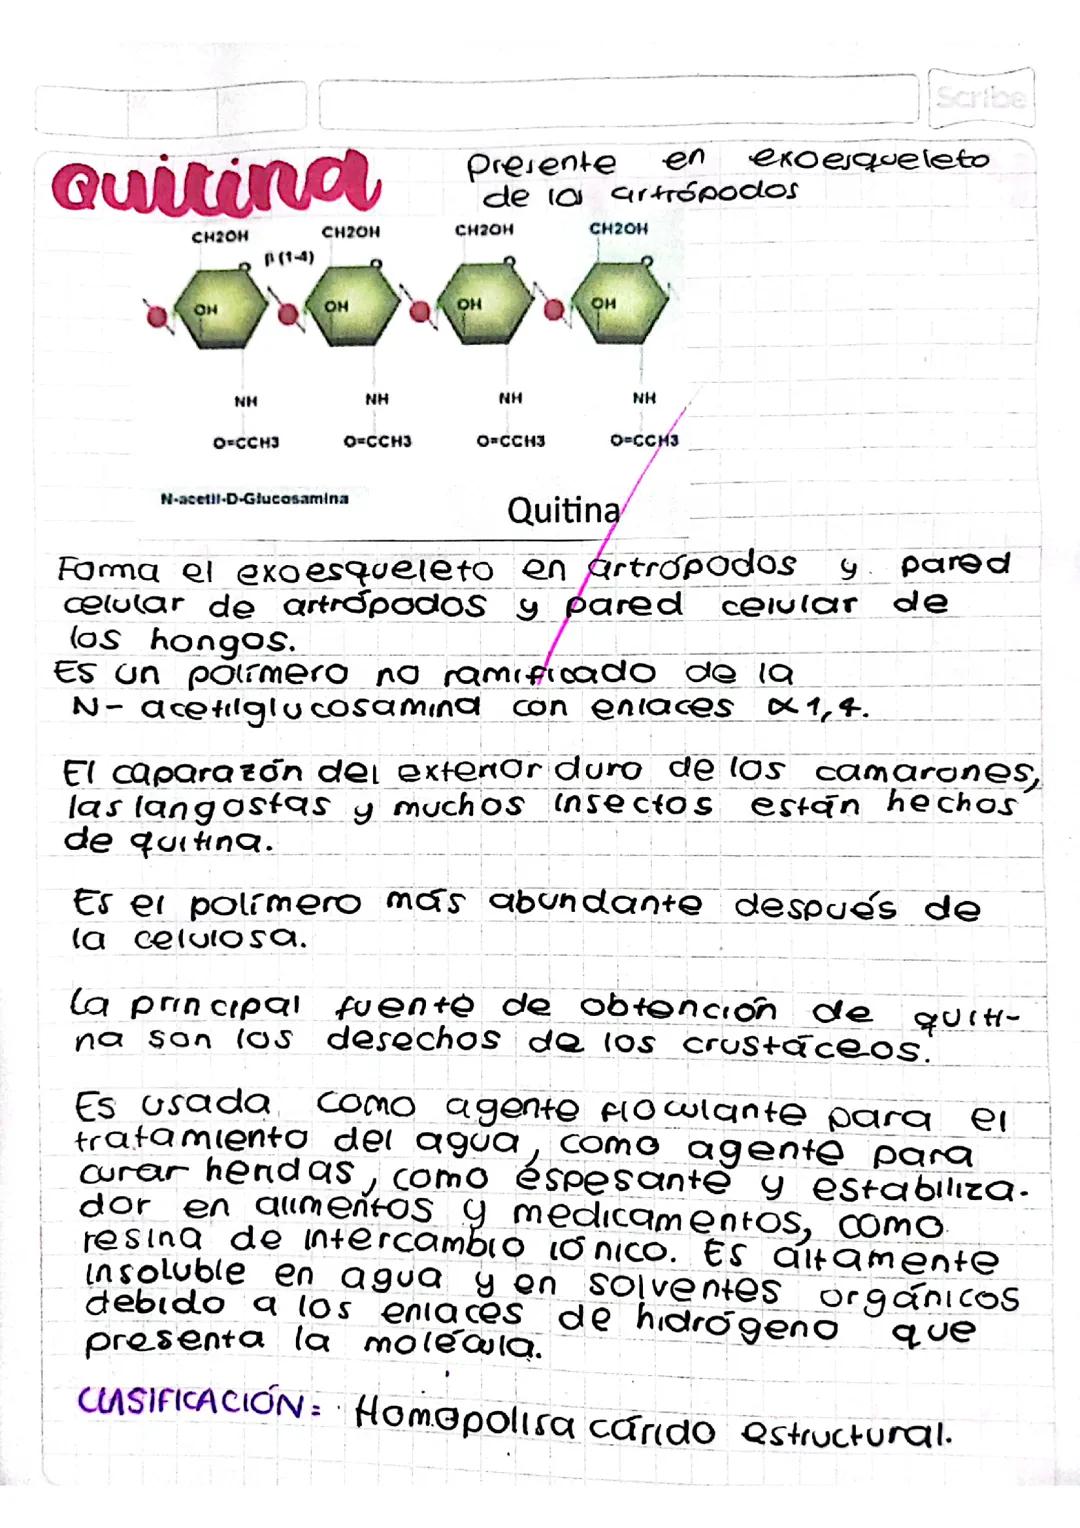 Scribe
Quitina
Presente en exoesqueleto
de los artrópodos
CH2OH CH2OH CH2OH CH2OH
β (1-4)
O O O O
OH OH OH OH
NH NH NH NH
O=CCH3 O=CCH3 O=CCH3 O=CCH3
N-acetil-D-Glucosamina
Quitina
Forma el exoesqueleto en artrópodos y pared
celular de artrópodos y pared celular de
los hongos.
Es un polímero no ramificado de la
N- acetilglucosamina con enlaces α1,4.
El caparazón del exterior duro de los camarones,
las langostas y muchos insectos están hechos
de quitina.
Es el polímero más abundante después de
la celulosa.
La principal fuente de obtención de quiti-
na son los desechos de los crustáceos.
Es usada como agente floculante para el
tratamiento del agua, como agente para
curar heridas, como espesante y estabiliza-
dor en alimentos y medicamentos, como
resina de intercambio iónico. Es altamente
insoluble en agua y en solventes orgánicos
debido a los enlaces de hidrógeno que
presenta la molécula.
CLASIFICACIÓN: Homopolisacárido estructural.